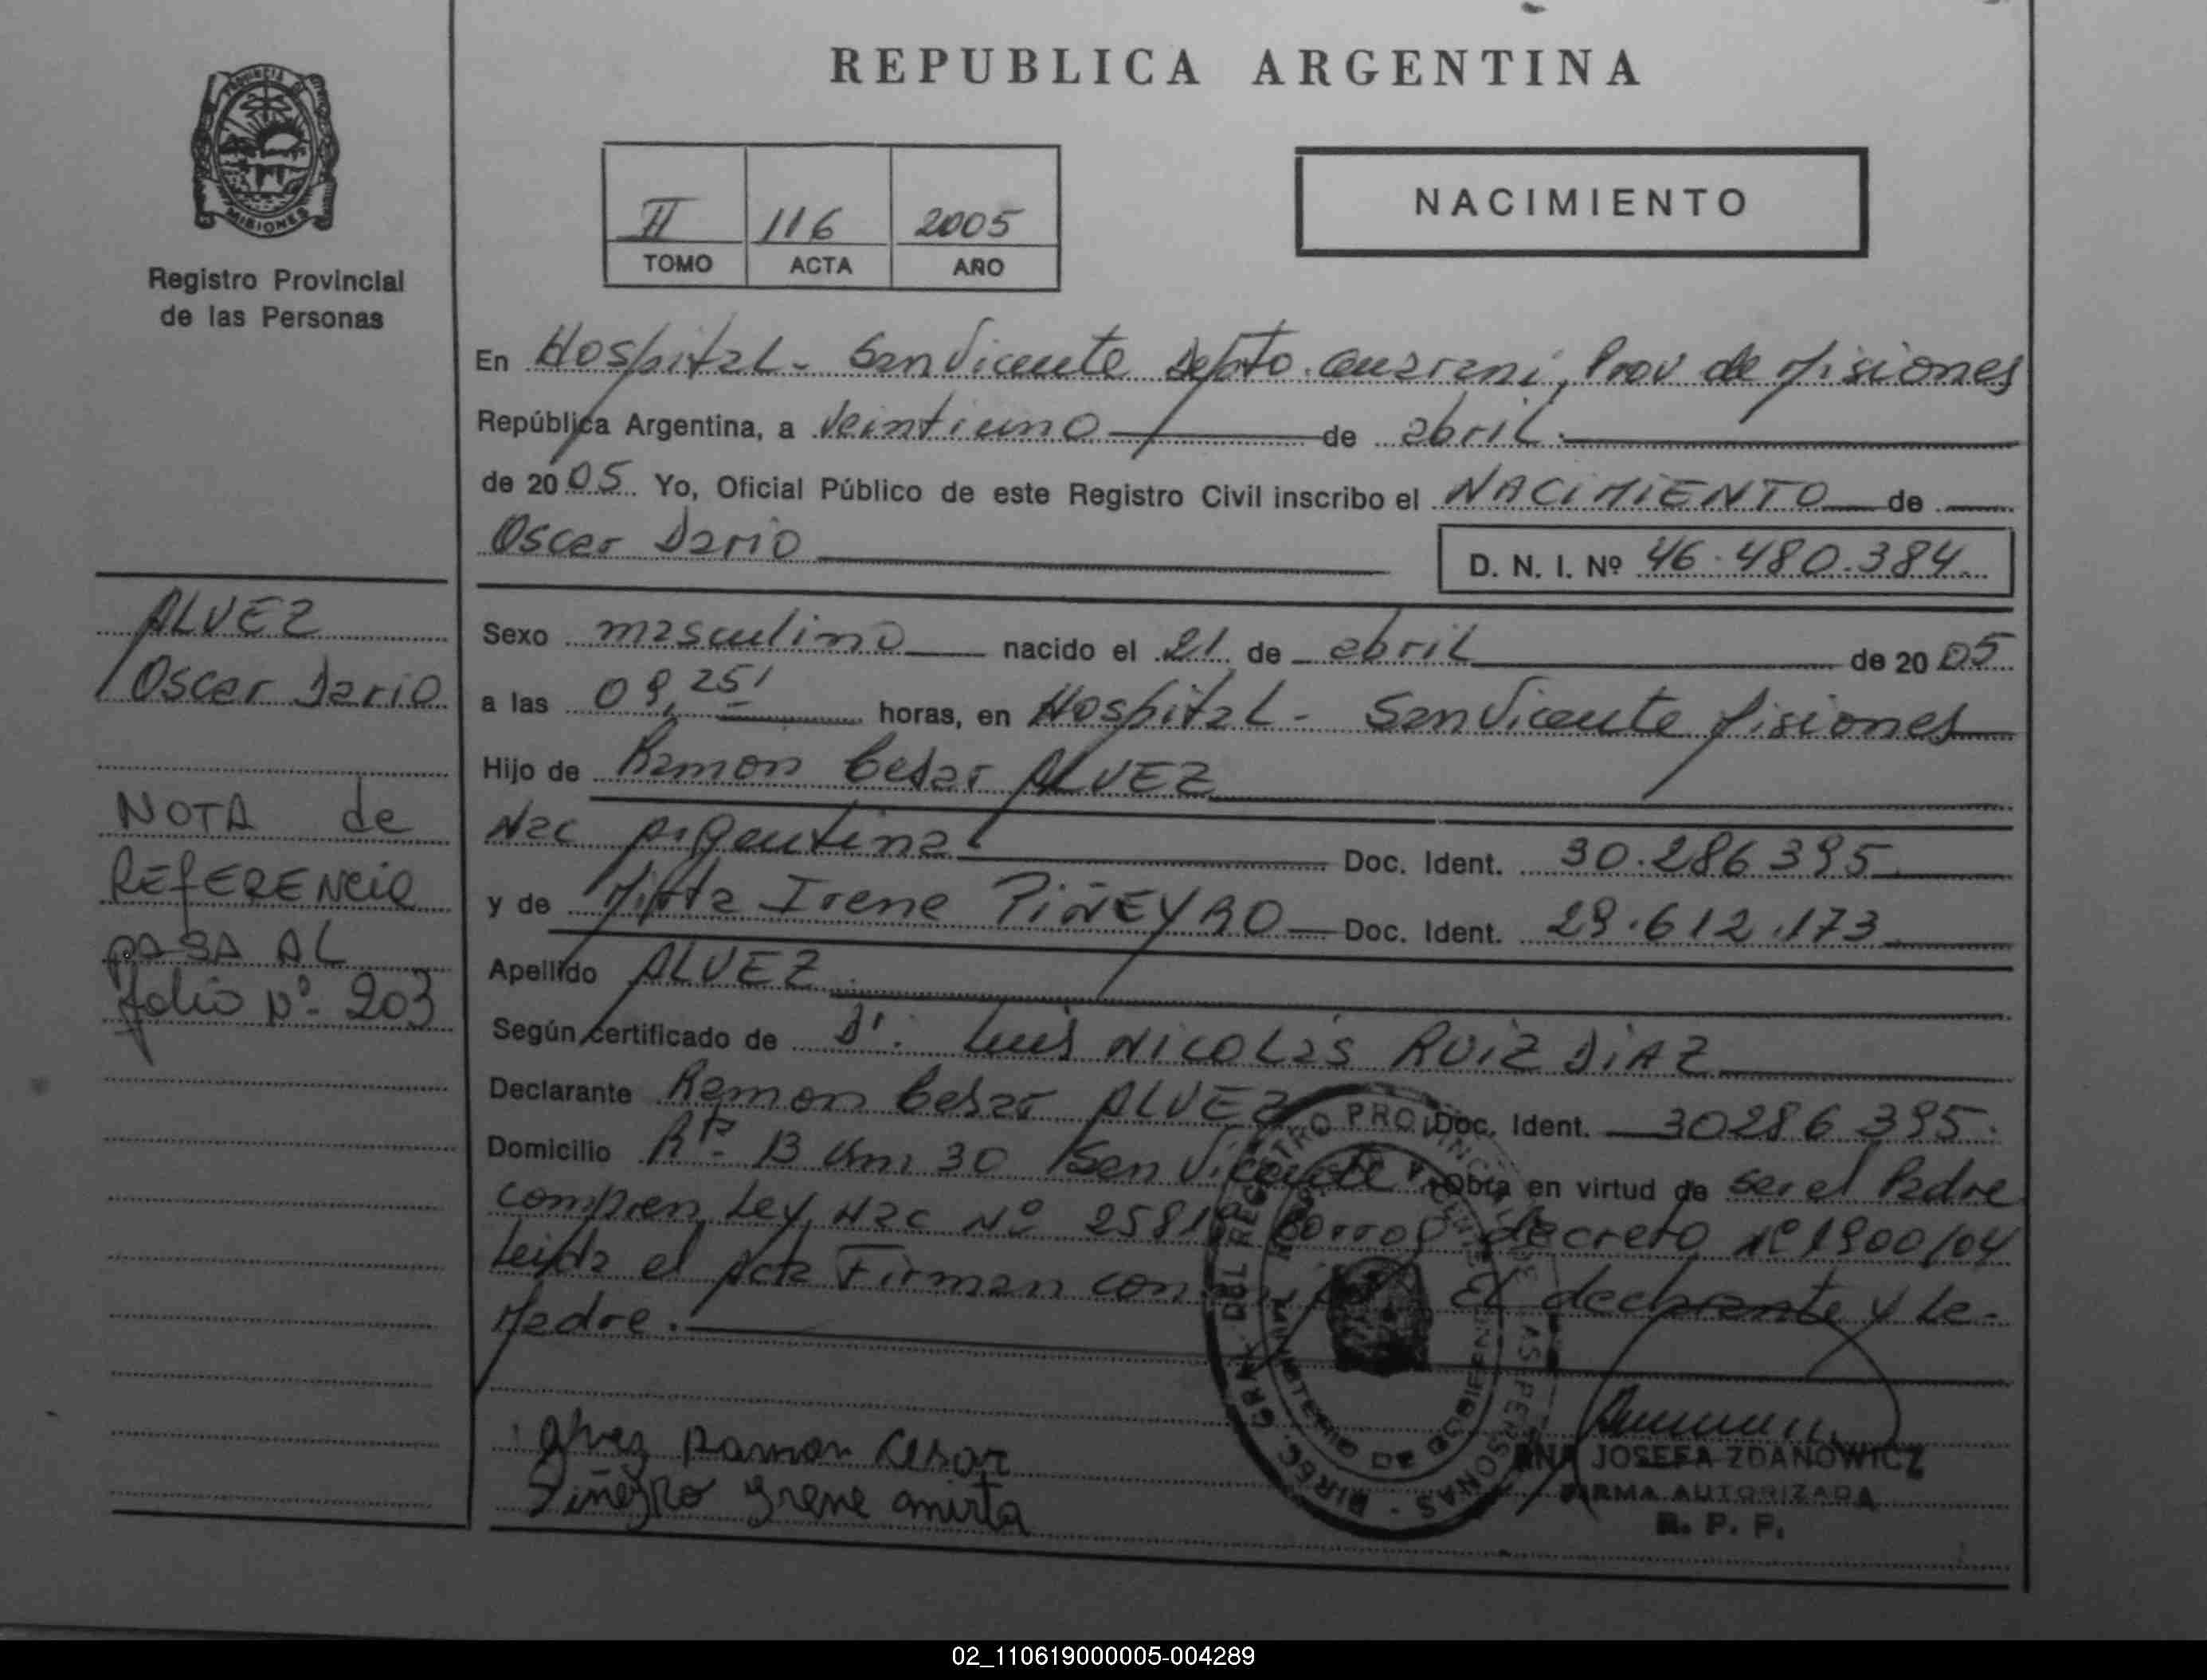 REPUBLICA ARGENTINA
PROVINCIA DE MISIONES
Registro Provincial
de las Personas
II 116 2005
TOMO ACTA AÑO
NACIMIENTO
En Hospital - San Vicente Depto. Guarani, Prov de Misiones
República Argentina, a Veintiuno de abril.
de 2005 Yo, Oficial Público de este Registro Civil inscribo el NACIMIENTO de
Oscar Dario
D. N. I. Nº 46.480.384
ALVEZ
Oscar Dario
NOTA de
REfERENCiA
pASA AL
folio Nº 203
Sexo masculino nacido el 21 de abril de 2005
a las 09,25' horas, en Hospital - San Vicente Misiones
Hijo de Ramon Cesar ALVEZ
Nac Argentina Doc. Ident. 30.286395
y de Mirta Irene PIÑEYRO Doc. Ident. 29.612.173
Apellido ALVEZ
Según certificado de Dr. Luis NICOLAS RUIZ DIAZ
Declarante Ramon Cesar ALVEZ Doc. Ident. 30286395.
Domicilio Rta. 13 Km 30 San Vicente Obra en virtud de ser el Padre
Ley Nac Nº 25819 decreto Nº 1900/04
Leida el Acta Firman con El declarante y La-
Madre.
Alvez Ramon Cesar
Piñeyro Yrene mirta
DIREC. GRAL. DEL REGISTRO PROVINCIAL DE LAS PERSONAS
MINISTERIO DE GOBIERNO
ANA JOSEFA ZDANOWICZ
FIRMA AUTORIZADA
R. P. P.
02_110619000005-004289